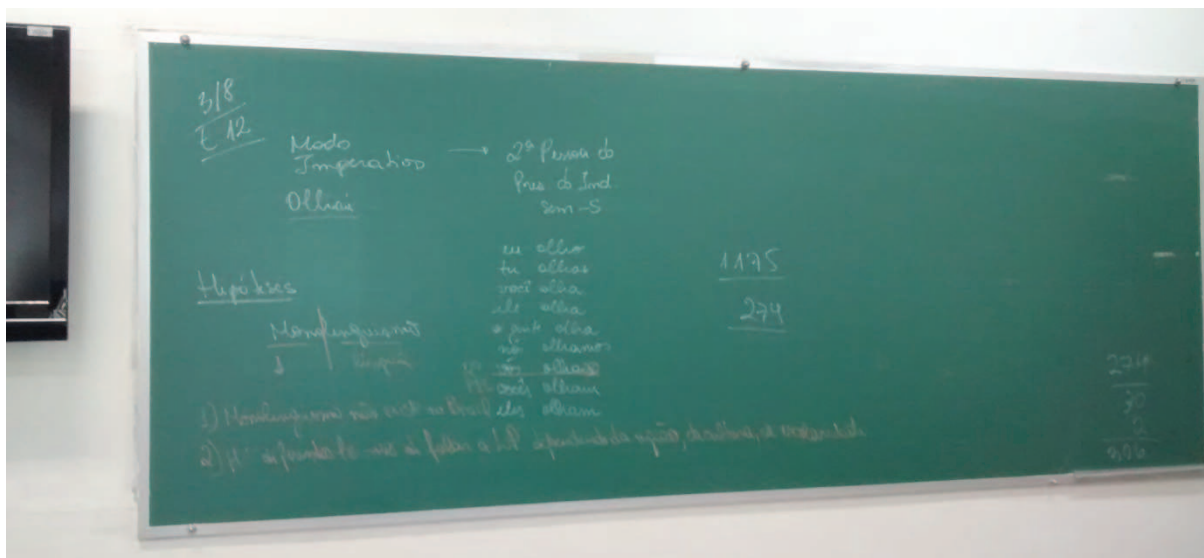 3/8
E 12
Modo
Imperativo → 2ª Pessoa do
Pres. do Ind
sem -S
Olhai
eu olho
tu olhas
você olha
ele olha
a gente olha
nós olhamos
vós olhais
vocês olham
eles olham
Hipóteses
Monolinguismo
↓ língua
1) Monolinguismo não existe no Brasil
2) de falar a LP dependendo da região, da cultura, da
1175
274
274
30
2
306